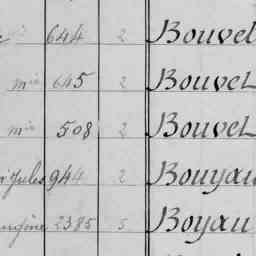 644 2 Bouvet
m ie 645 2 Bouvet
m ie 508 2 Bouvet
Jules 944 2 Bouyau
2385 5 Boyau